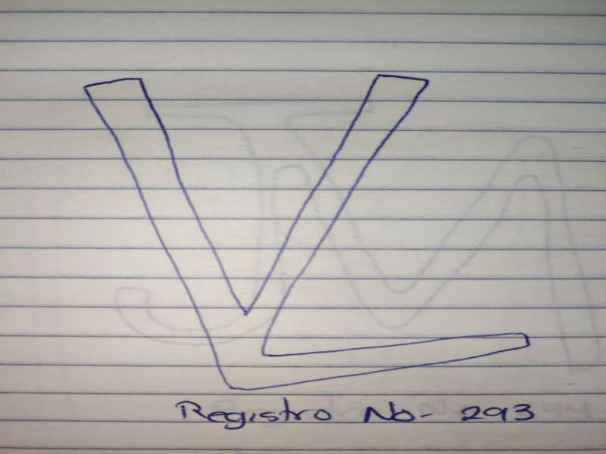 VL
Registro No- 293